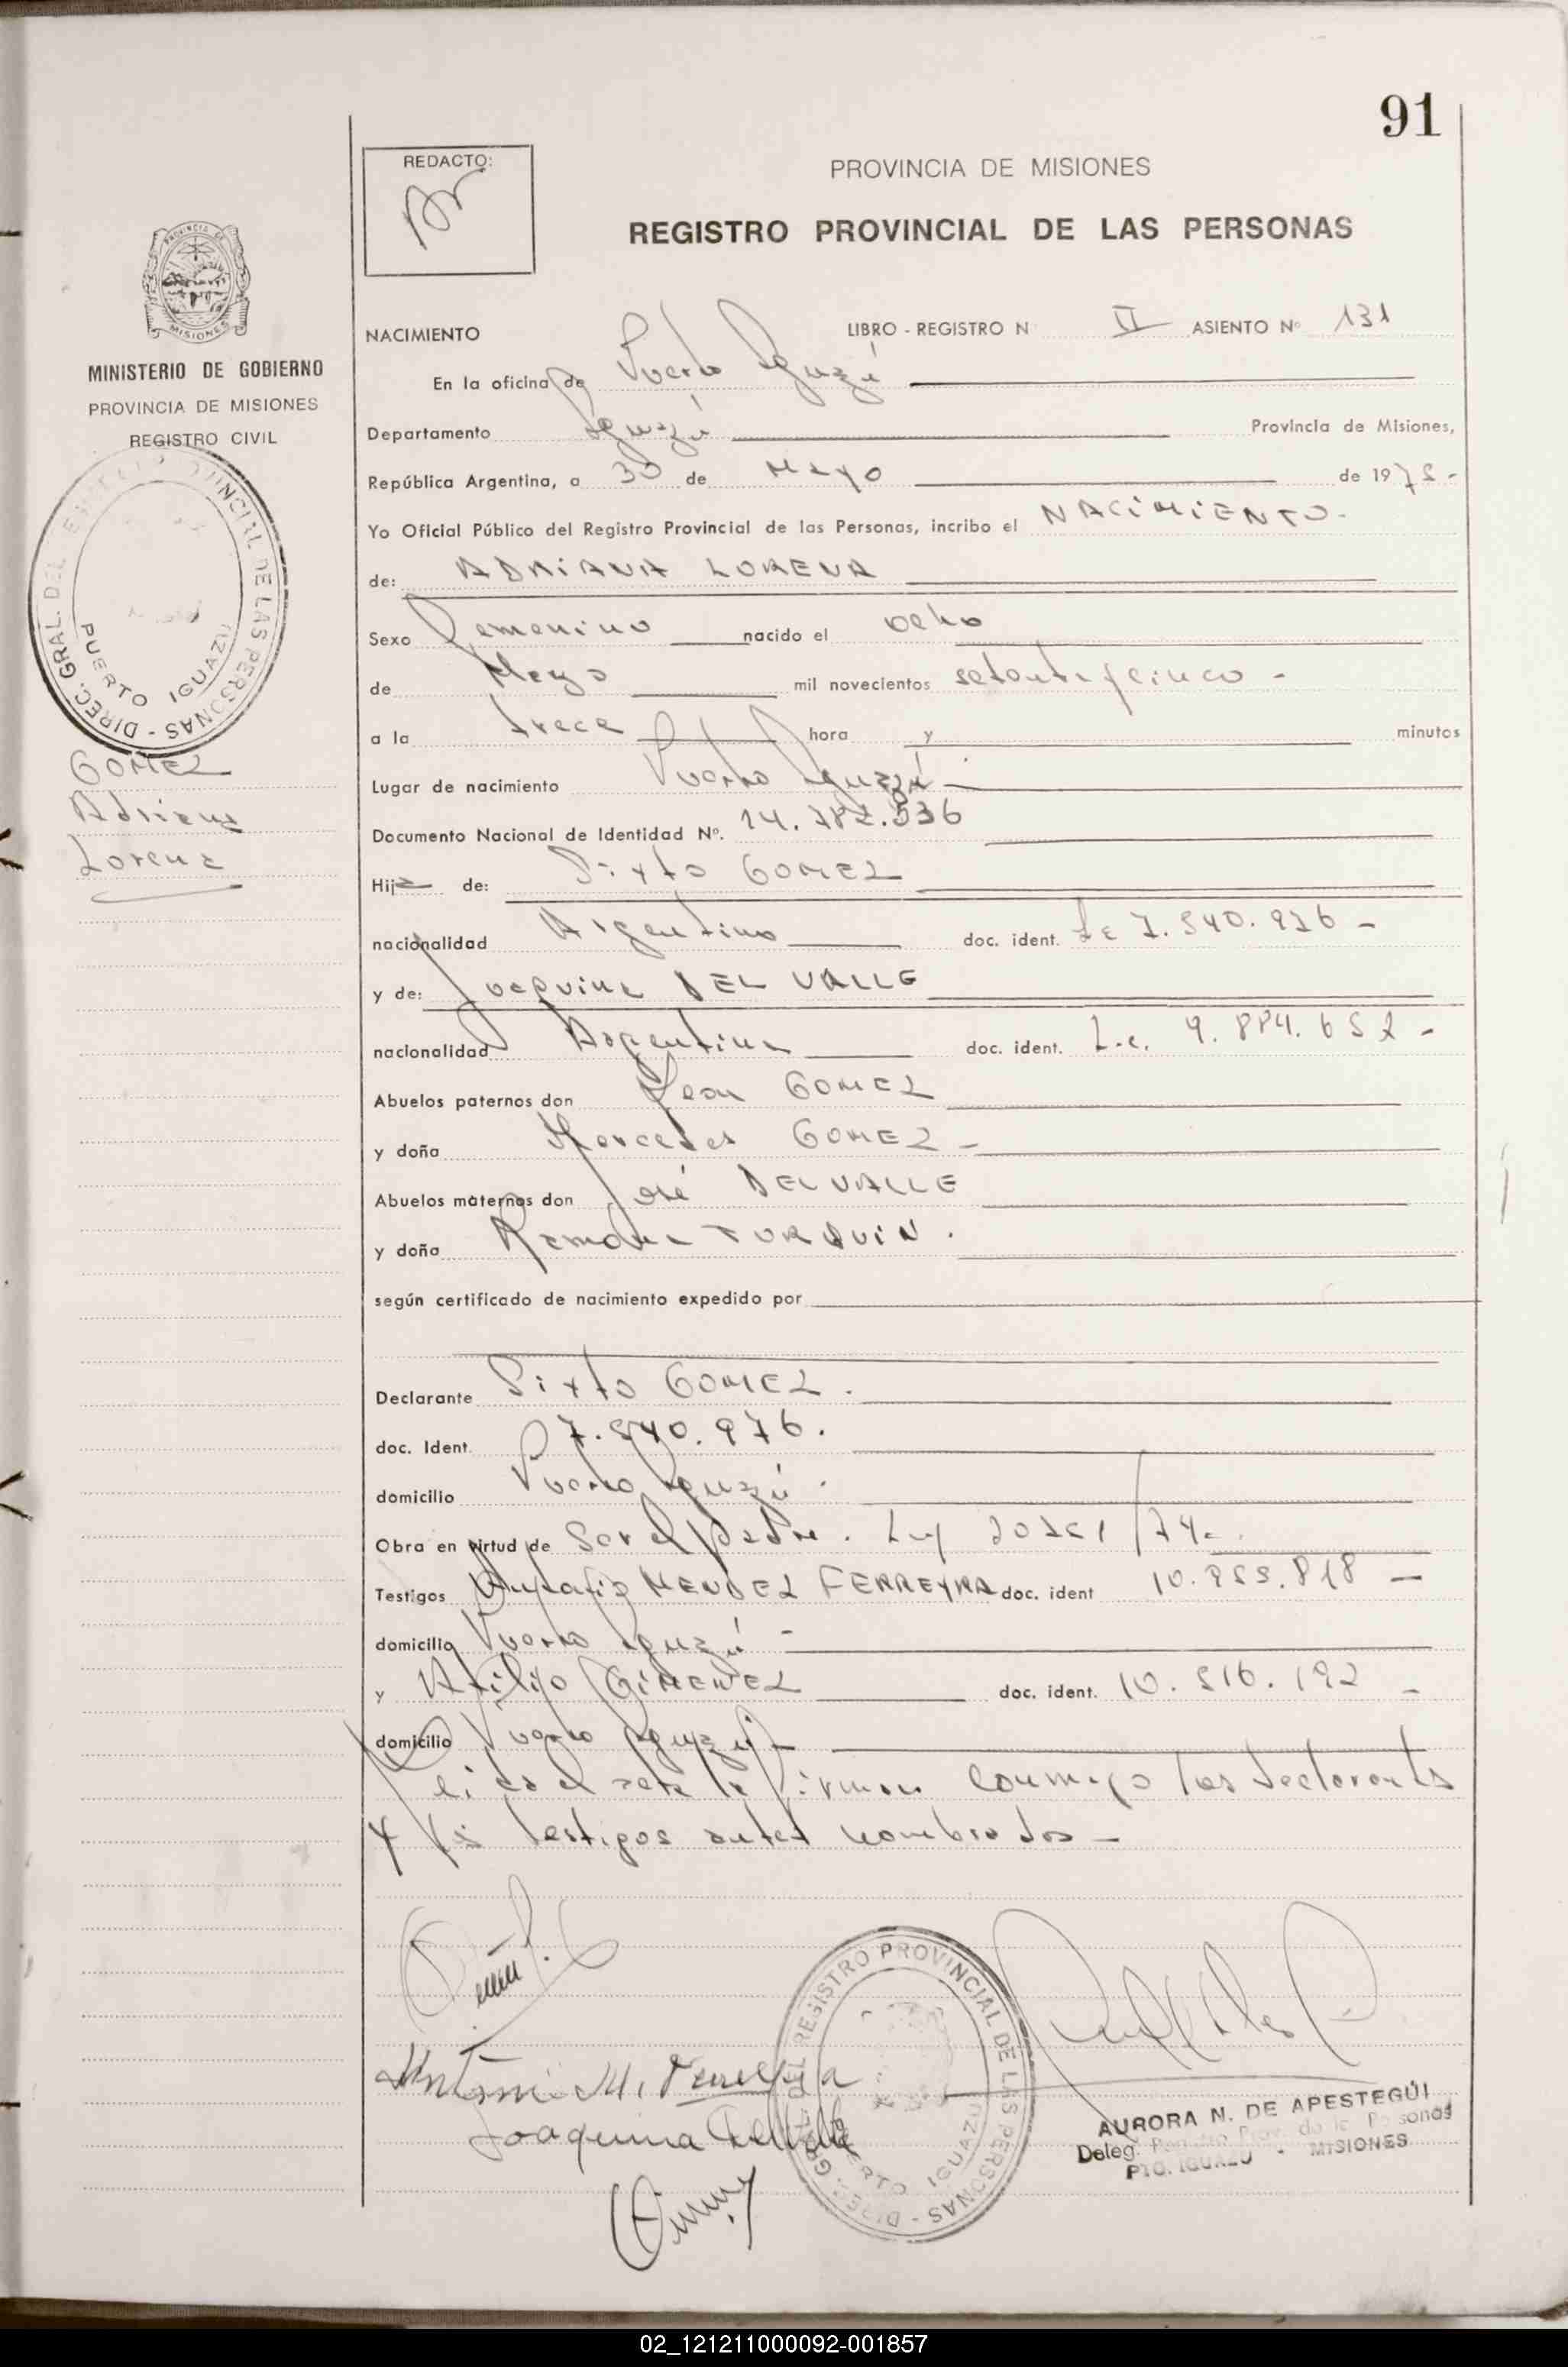 91
REDACTO:
PROVINCIA DE MISIONES
REGISTRO PROVINCIAL DE LAS PERSONAS
MISIONES
MINISTERIO DE GOBIERNO
PROVINCIA DE MISIONES
REGISTRO CIVIL
DIREC. GRAL. DEL PROVINCIAL DE LAS PERSONAS - PUERTO IGUAZU
GOMEZ
Adriana
Lorena
NACIMIENTO LIBRO - REGISTRO N II ASIENTO Nº 131
En la oficina de Puerto Iguazú
Departamento Iguazú Provincia de Misiones,
República Argentina, a 30 de Mayo de 1975-
Yo Oficial Público del Registro Provincial de las Personas, incribo el NACIMIENTO-
de: ADRIANA LORENA
Sexo Femenino nacido el ocho
de Mayo mil novecientos setenta y cinco -
a la trece hora y minutos
Lugar de nacimiento Puerto Iguazú -
Documento Nacional de Identidad Nº.
Hija de: Sixto GOMEZ
nacionalidad Argentino doc. ident. 7.540.976 -
y de: Joaquina DEL VALLE
nacionalidad Argentina doc. ident. L.c.
Abuelos paternos don GOMEZ
y doña Mercedes GOMEZ -
Abuelos maternos don José DELVALLE
y doña Ramona TURQUIN .
según certificado de nacimiento expedido por
Declarante Sixto GOMEZ .
doc. Ident. 7.540.976.
domicilio Puerto Iguazú .
Obra en virtud de Ser el padre . Ley /74-.
Testigos MENDEZ FERREYRA doc. ident 818 -
domicilio Puerto Iguazú -
y Atilio GIMENEZ doc. ident. 10. 516. 192 -
domicilio Puerto Iguazú -
Leida el acta la firman conmigo los declarantes
y los testigos antes nombrados -
Joaquina Delvalle
DIREC. GRAL. DEL REGISTRO PROVINCIAL DE LAS PERSONAS - PUERTO IGUAZU
AURORA N. DE APESTEGÚI
Deleg. Registro Prov. de las Personas
PTO. IGUAZU - MISIONES
02_121211000092-001857